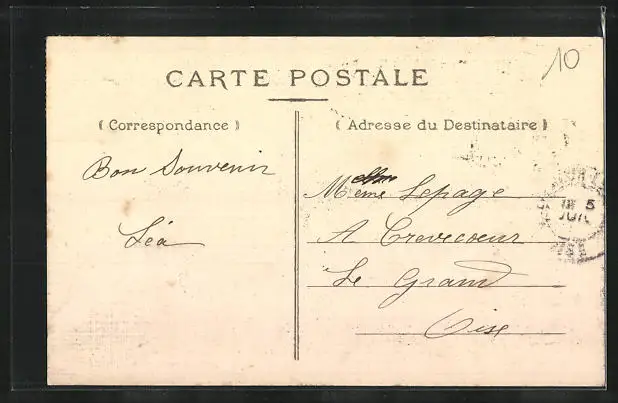 10
CARTE POSTALE
( Correspondance )
( Adresse du Destinataire )
Bon Souvenir
Léa
Meme Lepage
A Crevecoeur
Le Grand
Oise
5